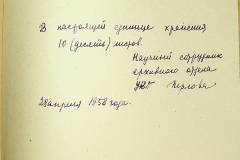 В настоящей единице хранения
10 (десять) листов.
Научный сотрудник
архивного отдела
28 апреля 1958 года.